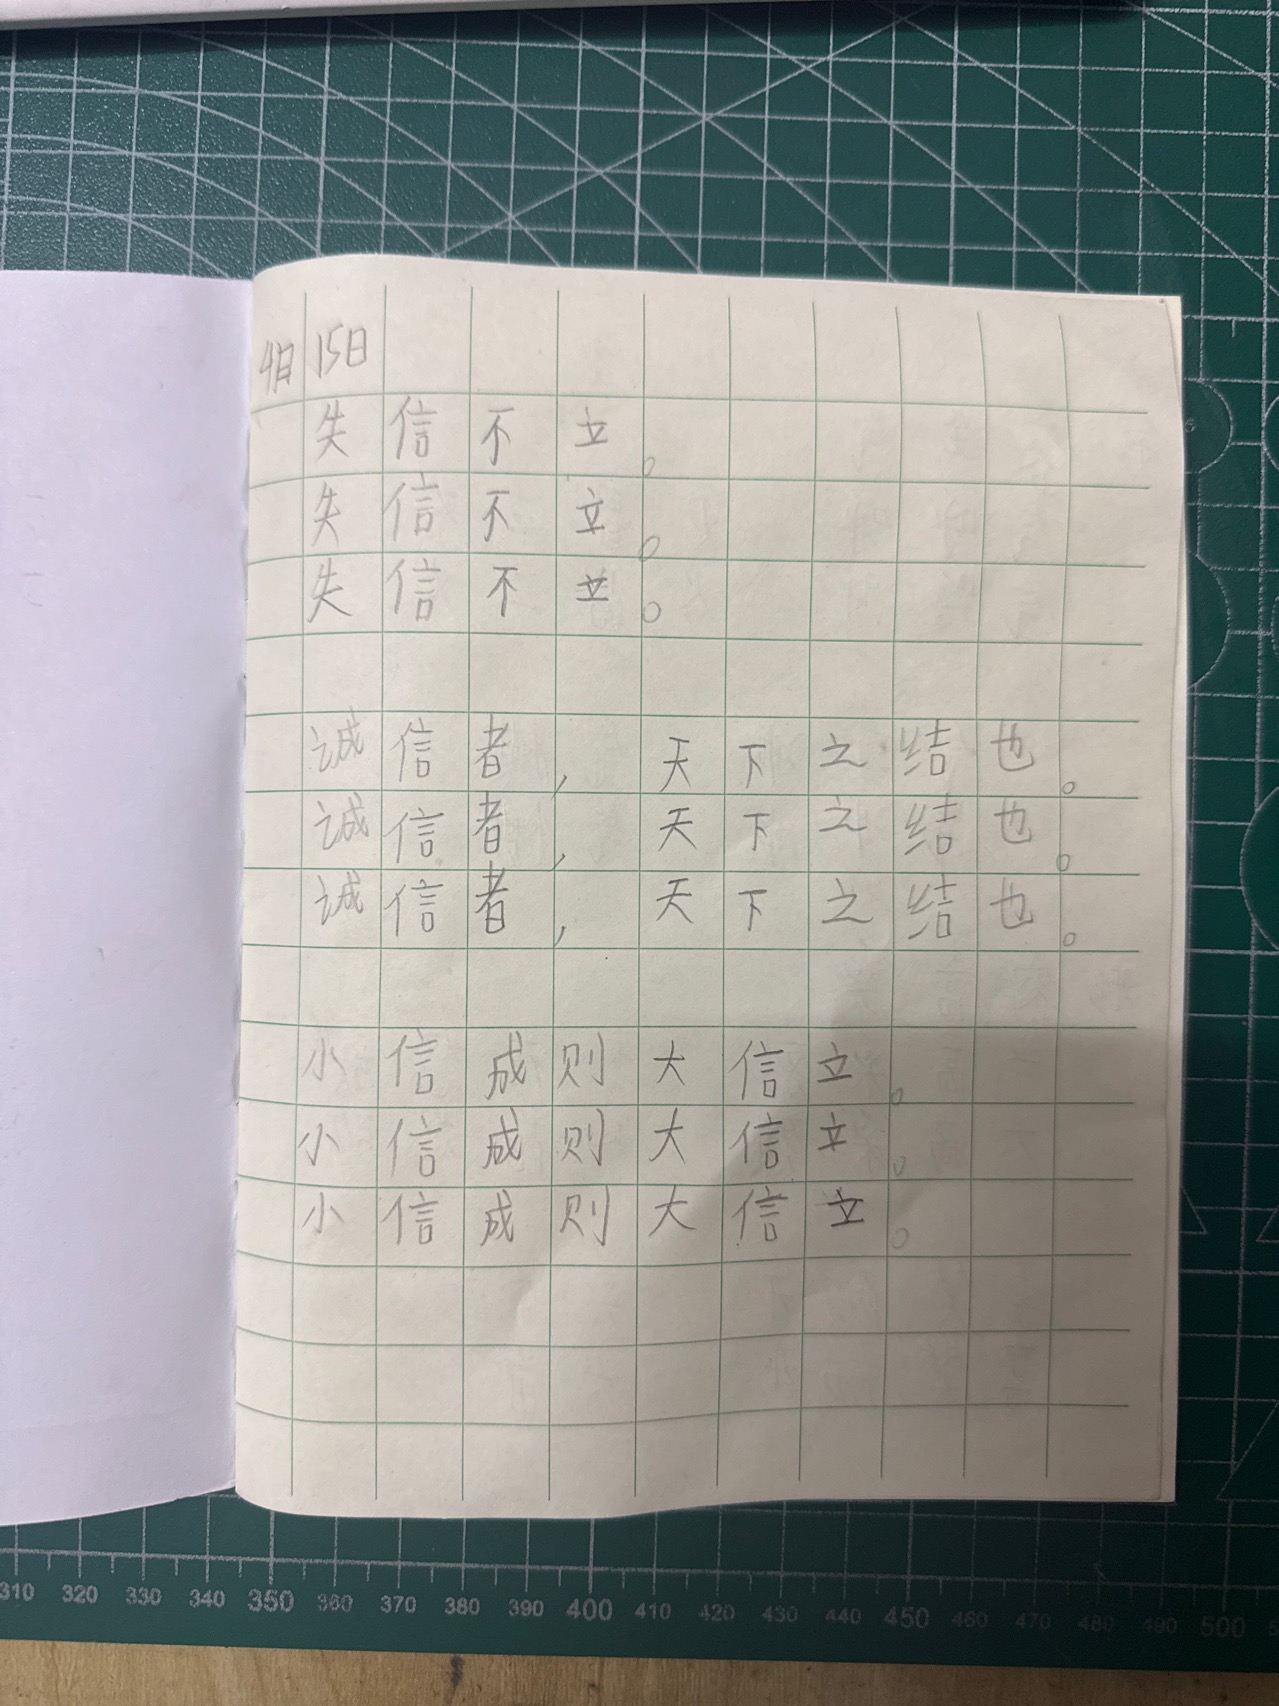 4月15日
失信不立。
失信不立。
失信不立。
诚信者,天下之结也。
诚信者,天下之结也。
诚信者,天下之结也。
小信成则大信立。
小信成则大信立。
小信成则大信立。
310 320 330 340 350 360 370 380 390 400 410 420 430 440 450 460 470 480 490 500